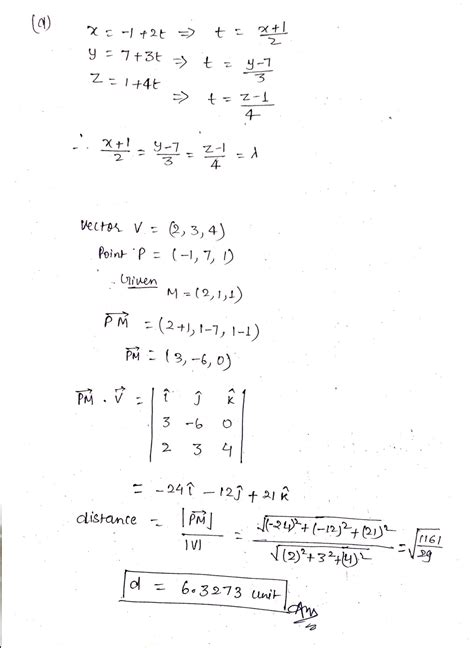 (a)
x = -1 + 2t ⇒ t = (x+1)/2
y = 7 + 3t ⇒ t = (y-7)/3
z = 1 + 4t
⇒ t = (z-1)/4
∴ (x+1)/2 = (y-7)/3 = (z-1)/4 = λ
Vector V = (2, 3, 4)
Point P = (-1, 7, 1)
Given
M = (2, 1, 1)
PM⃗ = (2+1, 1-7, 1-1)
PM⃗ = (3, -6, 0)
PM⃗ . V⃗ = | î ĵ k̂ |
| 3 -6 0 |
| 2 3 4 |
= -24î - 12ĵ + 21k̂
distance = |PM⃗| / |V| = √((-24)² + (-12)² + (21)²) / √((2)² + 3² + (4)²) = √(1161/29)
d = 6.3273 unit Ans